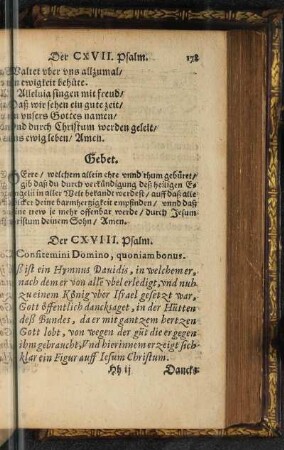 Der CXVII. Psalm. 178
Waltet vber vns allzumal/
n ewigkeit behüte.
Alleluia singen mit freud/
Daß wir sehen ein gute zeit/
n vnsers Gottes namen/
Vnd durch Christum werden geleit/
ns ewig leben/ Amen.
Gebet.
HErr/ welchem allein ehre vnnd rhum gebüret/
gib daß du durch verkündigung deß heiligen E-
angelii in aller Welt bekandt werdest/ auff daß alle
völcker deine barmhertzigkeit empfinden/ vnnd daß
deine trew je mehr offenbar werde/ durch Jesum
Christum deinem Sohn/ Amen.
Der CXVIII. Psalm.
Confitemini Domino, quoniam bonus.
Diß ist ein Hymnus Dauidis, in welchem er,
nach dem er von allē vbel erledigt, vnd nuh
zu einem König vber Israel gesetzt war,
Gott öffentlich dancksaget, in der Hütten
deß Bundes, da er mit gantzem hertzen
Gott lobt, von wegen der güt die er gegen
ihm gebraucht, Vnd hierinnen erzeigt sich
klar ein Figur auff Iesum Christum.
Hh ij Danck⸗